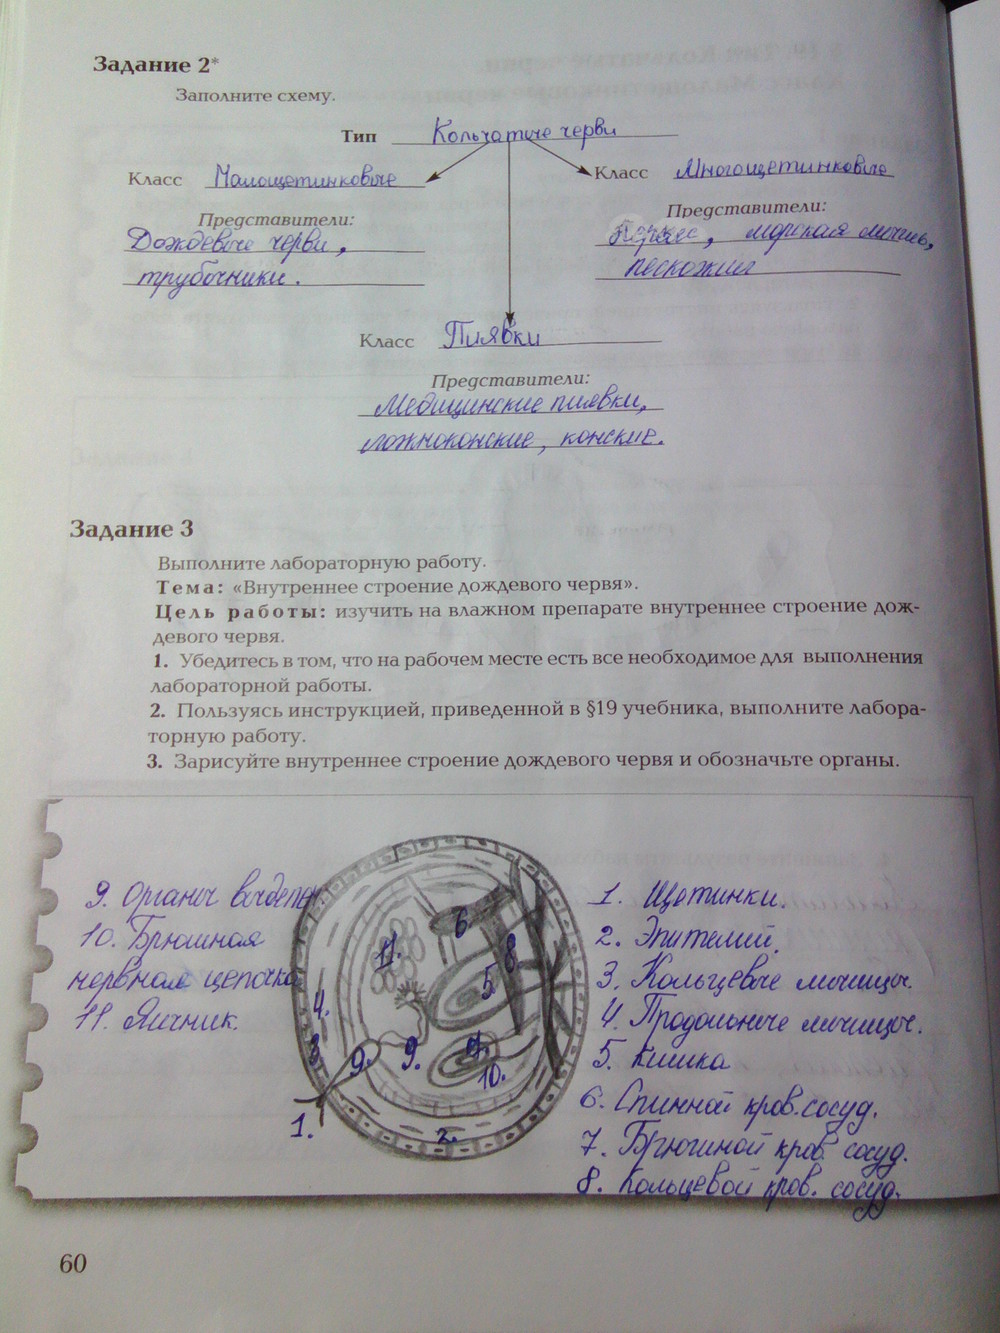 Задание 2*
Заполните схему.
Тип Кольчатые черви
Класс Малощетинковые
Класс Многощетинковые
Представители:
Дождевые черви,
трубочники.
Представители:
Нереис, морская мышь,
пескожил
Класс Пиявки
Представители:
Медицинские пиявки,
ложноконские, конские.
Задание 3
Выполните лабораторную работу.
Тема: «Внутреннее строение дождевого червя».
Цель работы: изучить на влажном препарате внутреннее строение дож-
девого червя.
1. Убедитесь в том, что на рабочем месте есть все необходимое для выполнения
лабораторной работы.
2. Пользуясь инструкцией, приведенной в §19 учебника, выполните лабора-
торную работу.
3. Зарисуйте внутреннее строение дождевого червя и обозначьте органы.
9. Органы выделен.
10. Брюшная
нервная цепочка
11. Яичник.
11.
6
8
5
4.
3
9.
9.
10.
1.
2.
1. Щетинки.
2. Эпителий.
3. Кольцевые мышцы.
4. Продольные мышцы.
5. Кишка
6. Спинной кров. сосуд.
7. Брюшной кров. сосуд.
8. Кольцевой кров. сосуд.
60